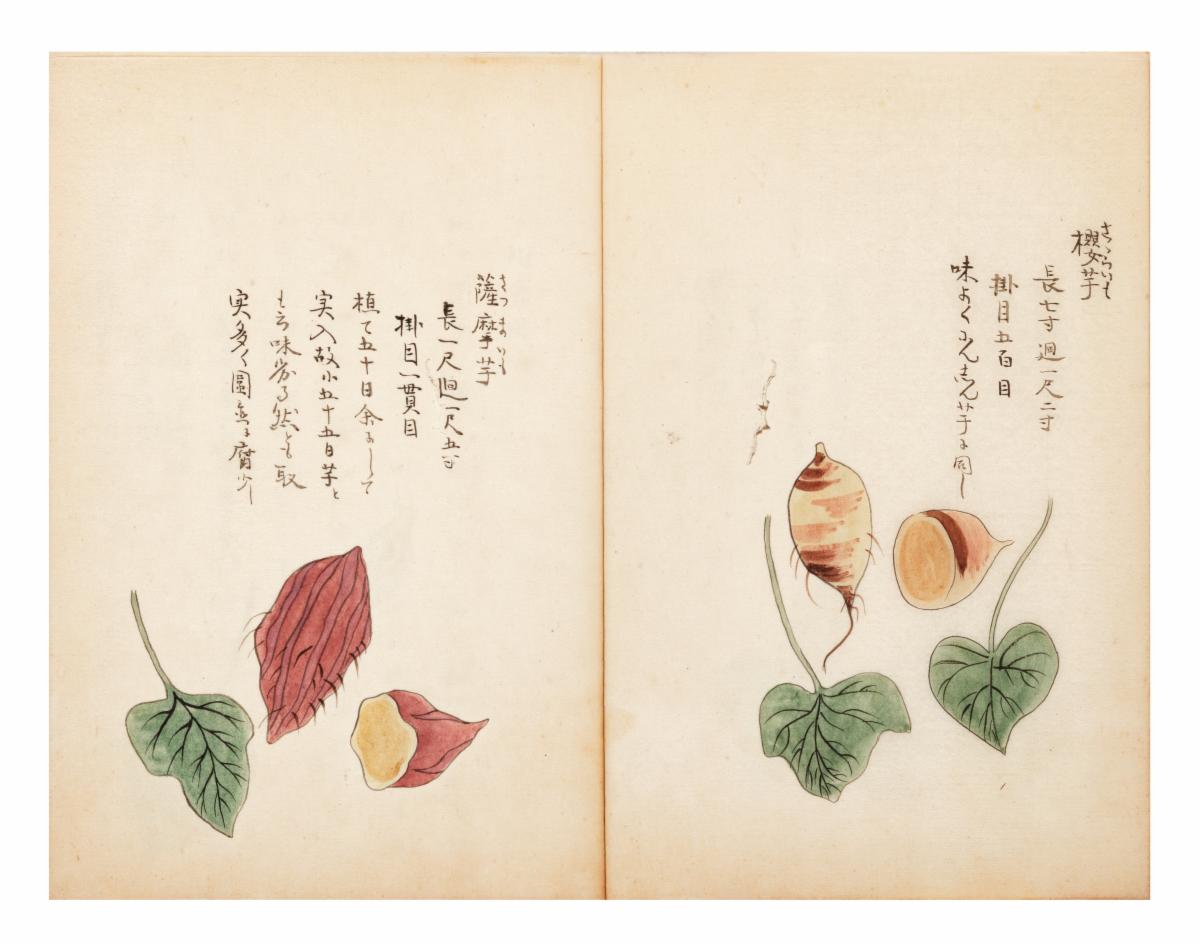 さくらいも
櫻芋
長七寸廻一尺二寸
掛目五百目
味よくにんじん芋に同し
さつまのいも
薩摩芋
長一尺廻一尺五寸
掛目一貫目
植て五十日余にして
実入故小五十五日芋と
も云味劣る然とも取
実多く圍置に腐少し